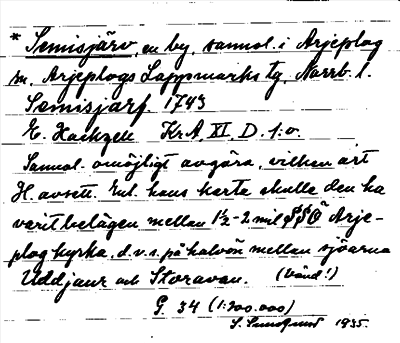 * Semisjärv, en by, sannol. i Arjeplog
sn, Arjeplogs Lappmarks tg, Norrb. l.
Semisjarf. 1743
E. Hackzell KrA, XI, D. 1:o.
Sannol. omöjligt avgöra, vilken ort
H. avsett. Enl. hans karta skulle den ha
varit belägen mellan 1½-2 mil SSO Arje-
plog kyrka, d.v.s. på halvön mellan sjöarna
Uddjaur och Storavan. (Vänd!)
G. 34 (1:200.000)
S. Sundqvist 1935.